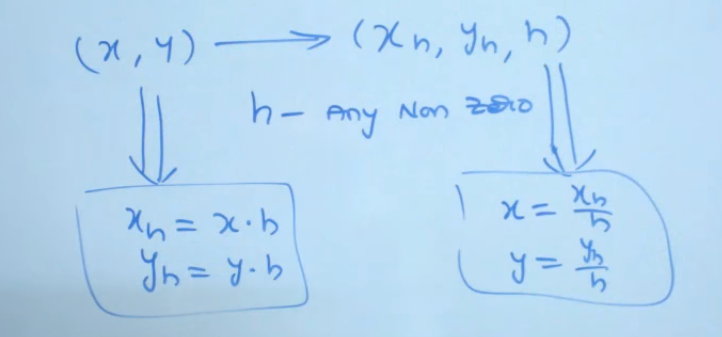 (x, y) ⟶ (xh, yh, h)
h – Any Non Zero
xh = x · h
yh = y · h
x = xh/h
y = yh/h